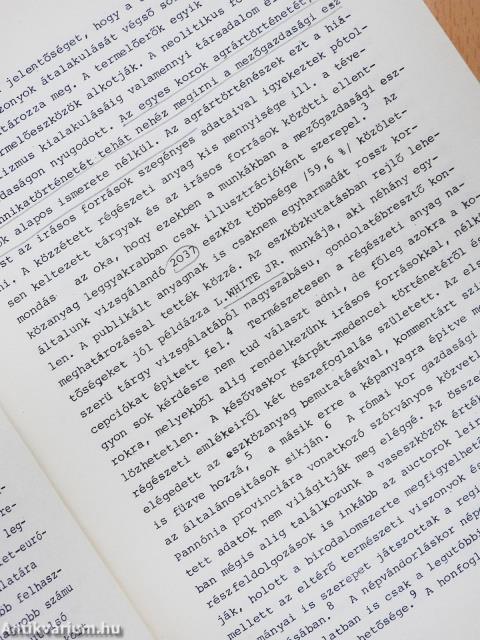 jelentőséget, hogy a
zonyok átalakulását végső so
tározza meg. A termelőerők egyik
rmelőeszközök alkotják. A neolitikus fo
izmus kialakulásáig valamennyi társadalom
daságon nyugodott. Az egyes korok agrártörténetét,
nnikatörténetét tehát nehéz megírni a mezőgazdasági esz
ok alapos ismerete nélkül. Az agrártörténészek ezt a hiá-
st az írásos források szegényes adataival igyekeztek pótol-
ni. A közzétett régészeti anyag kis mennyisége ill. a téve-
sen keltezett tárgyak és az írásos források közötti ellent-
mondás az oka, hogy ezekben a munkákban a mezőgazdasági esz-
közanyag leggyakrabban csak illusztrációként szerepel.3 Az
általunk vizsgálandó 2037 eszköz többsége /59,6 %/ közölet-
len. A publikált anyagnak is csaknem egyharmadát rossz kor-
meghatározással tették közzé. Az eszközkutatásban rejlő lehe-
tőségeket jól példázza L.WHITE JR. munkája, aki néhány egy-
szerű tárgy vizsgálatából nagyszabású, gondolatébresztő kon-
cepciókat épített fel.4 Természetesen a régészeti anyag na-
gyon sok kérdésre nem tud választ adni, de főleg azokra a ko-
rokra, melyekből alig rendelkezünk írásos forrásokkal, nélk
lözhetetlen. A késővaskor Kárpát-medencei történetéről és
régészeti emlékeiről két összefoglalás született. Az els
elégedett az eszközanyag bemutatásával, kommentárt szi
is fűzve hozzá,5 a másik erre a képanyagra építve me
az általánosítások síkján.6 A római kor gazdasági
Pannónia provinciára vonatkozó szórványos közvetl
tett adatok nem világítják meg eléggé. Az össze
ban mégis alig találkozunk a vaseszközök érték
részfeldolgozások is inkább az auctorok leír
ják, holott a birodalomszerte megfigyelhet
mellett az eltérő természeti viszonyok és
mányai is szerepet játszottak a regi
ásában.8 A népvándorláskor nép
latban is csak a legutóbb
hetősége.9 A honfogl
re-
leg-
et-euró-
latára
bb felhasz-
obb számu
Antikvarium.hu